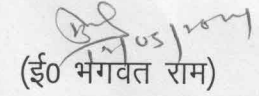 05/2024
(ई0 भगवत राम)